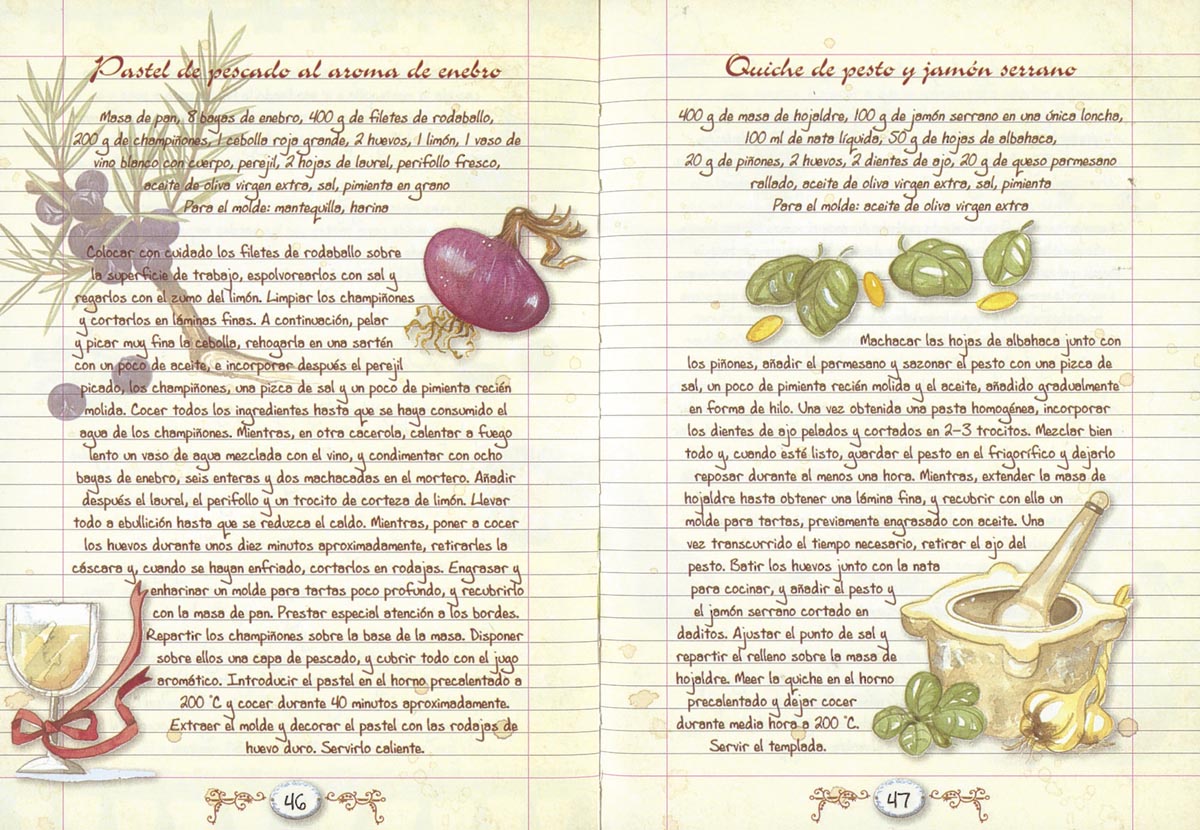 Pastel de pescado al aroma de enebro
Masa de pan, 8 bayas de enebro, 400 g de filetes de rodaballo,
200 g de champiñones, 1 cebolla roja grande, 2 huevos, 1 limón, 1 vaso de
vino blanco con cuerpo, perejil, 2 hojas de laurel, perifollo fresco,
aceite de oliva virgen extra, sal, pimienta en grano
Para el molde: mantequilla, harina
Colocar con cuidado los filetes de rodaballo sobre
la superficie de trabajo, espolvorearlos con sal y
regarlos con el zumo del limón. Limpiar los champiñones
y cortarlos en láminas finas. A continuación, pelar
y picar muy fina la cebolla, rehogarla en una sartén
con un poco de aceite, e incorporar después el perejil
picado, los champiñones, una pizca de sal y un poco de pimienta recién
molida. Cocer todos los ingredientes hasta que se haya consumido el
agua de los champiñones. Mientras, en otra cacerola, calentar a fuego
lento un vaso de agua mezclada con el vino, y condimentar con ocho
bayas de enebro, seis enteras y dos machacadas en el mortero. Añadir
después el laurel, el perifollo y un trocito de corteza de limón. Llevar
todo a ebullición hasta que se reduzca el caldo. Mientras, poner a cocer
los huevos durante unos diez minutos aproximadamente, retirarles la
cáscara y, cuando se hayan enfriado, cortarlos en rodajas. Engrasar y
enharinar un molde para tartas poco profundo, y recubrirlo
con la masa de pan. Prestar especial atención a los bordes.
Repartir los champiñones sobre la base de la masa. Disponer
sobre ellos una capa de pescado, y cubrir todo con el jugo
aromático. Introducir el pastel en el horno precalentado a
200 °C y cocer durante 40 minutos aproximadamente.
Extraer el molde y decorar el pastel con las rodajas de
huevo duro. Servirlo caliente.
46
Quiche de pesto y jamón serrano
400 g de masa de hojaldre, 100 g de jamón serrano en una única loncha,
100 ml de nata líquida, 50 g de hojas de albahaca,
20 g de piñones, 2 huevos, 2 dientes de ajo, 20 g de queso parmesano
rallado, aceite de oliva virgen extra, sal, pimienta
Para el molde: aceite de oliva virgen extra
Machacar las hojas de albahaca junto con
los piñones, añadir el parmesano y sazonar el pesto con una pizca de
sal, un poco de pimienta recién molida y el aceite, añadido gradualmente
en forma de hilo. Una vez obtenida una pasta homogénea, incorporar
los dientes de ajo pelados y cortados en 2-3 trocitos. Mezclar bien
todo y, cuando esté listo, guardar el pesto en el frigorífico y dejarlo
reposar durante al menos una hora. Mientras, extender la masa de
hojaldre hasta obtener una lámina fina, y recubrir con ella un
molde para tartas, previamente engrasado con aceite. Una
vez transcurrido el tiempo necesario, retirar el ajo del
pesto. Batir los huevos junto con la nata
para cocinar, y añadir el pesto y
el jamón serrano cortado en
daditos. Ajustar el punto de sal y
repartir el relleno sobre la masa de
hojaldre. Meer la quiche en el horno
precalentado y dejar cocer
durante media hora a 200 °C.
Servir el templada.
47